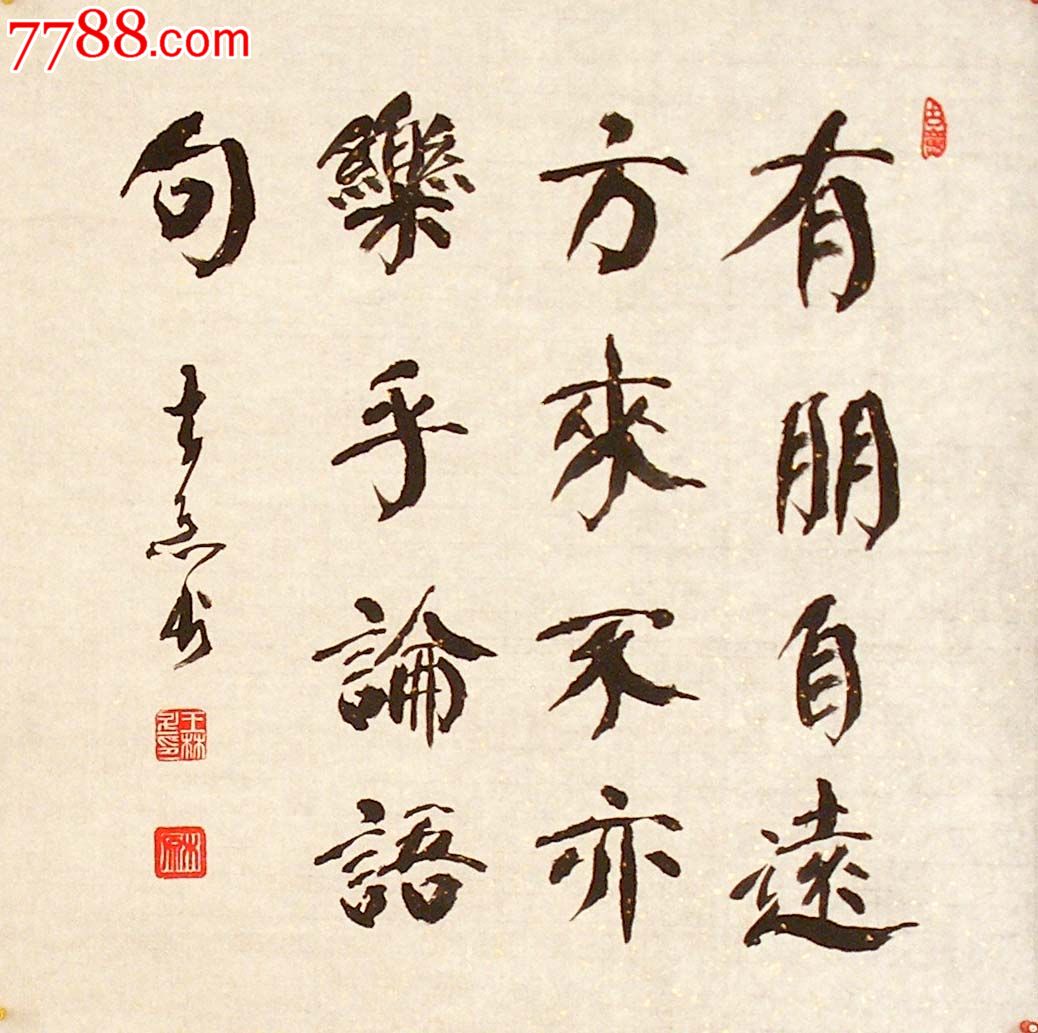 7788.com
有朋自遠
方來不亦
樂乎論語
句